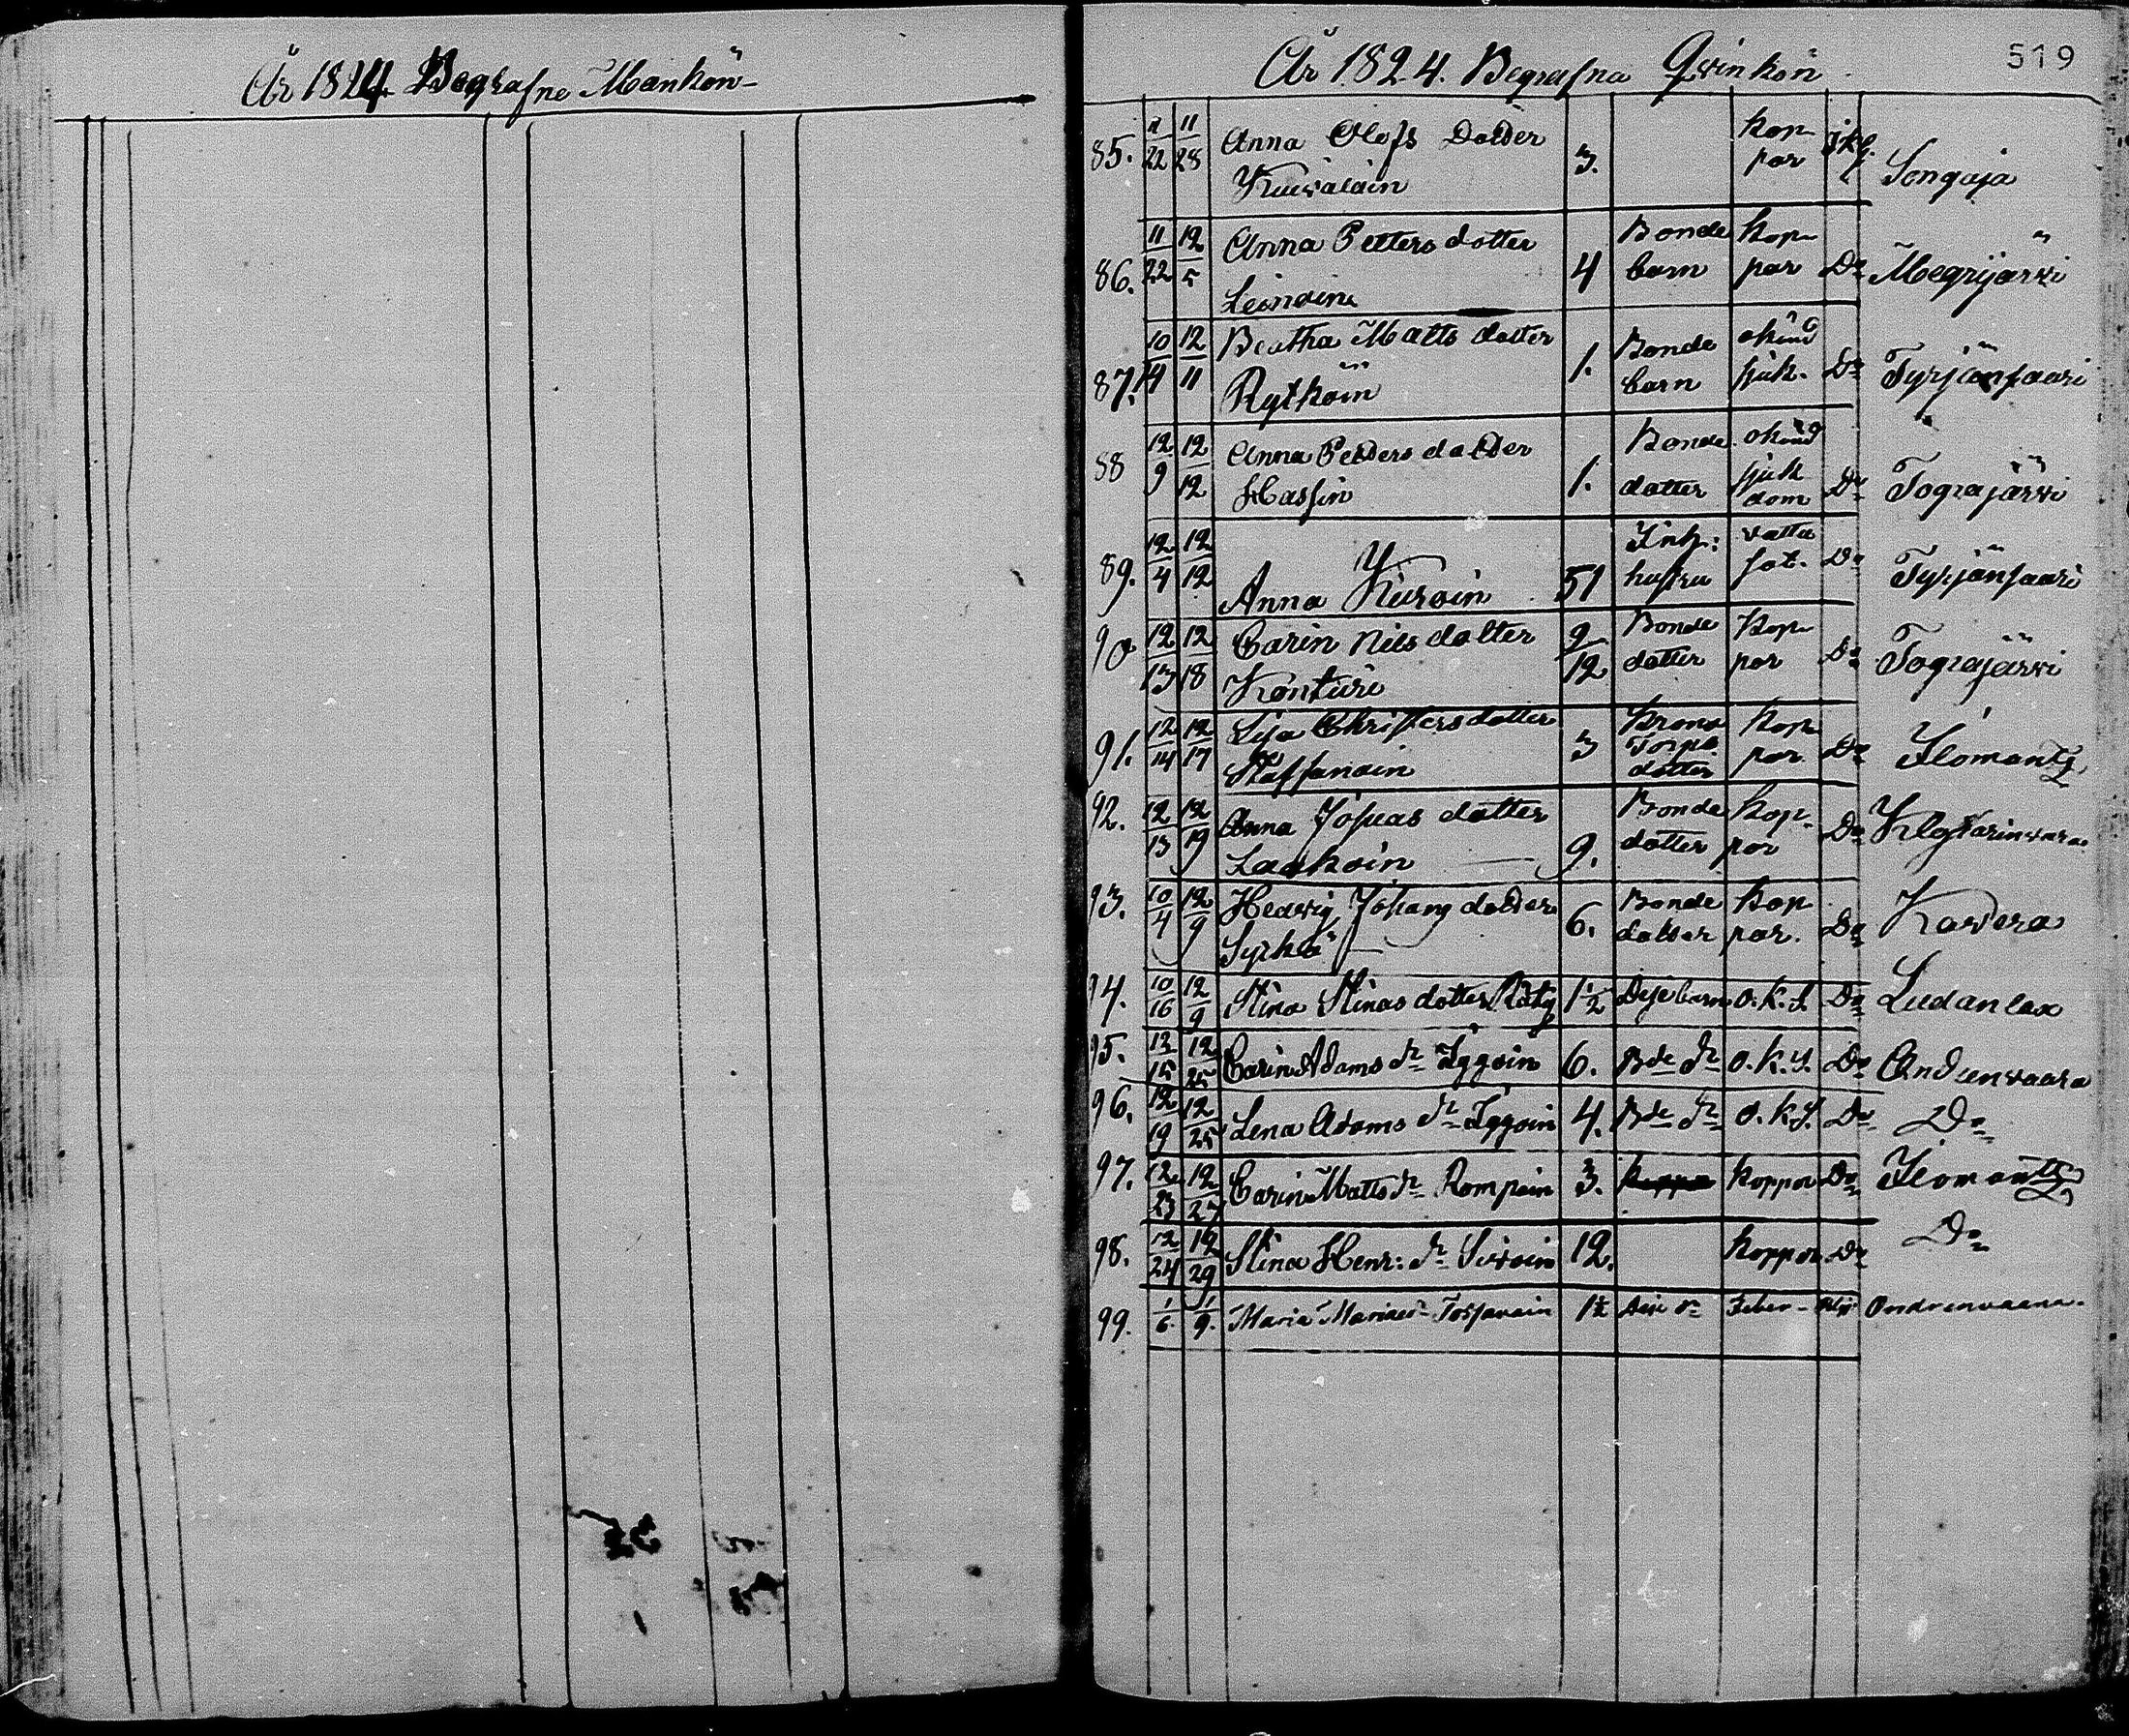 År 1824. Begrafne Mankön
År 1824. Begrafna Qvinkön
519
85. 11/22 11/28 Anna Olofs Dotter 3. Kop
Kuivalain por Songaja
86. 11/22 12/5 Anna Petters dotter 4 Bonde Kop
Leinoin barn por Do Megrijärvi
87. 10/14 12/11 Beatha Matts dotter 1. Bonde okänd
Rytköin barn sjuk. Do Tyrjänsaari
88 12/9 12/12 Anna Petters dotter 1. Bonde okänd
Hassin dotter sjuk dom Do Tograjärvi
89. 12/4 12/12 Inh: vatta
Anna 51 hustru sot. Do Tyrjänsaari
90 12/13 12/18 Carin Nils dotter 9/12 Bonde Kop
Konturi dotter por Do Tograjärvi
91. 12/14 12/17 Lisa Christers dotter 3 Krono Torps dotter Kop
Staffanain por Do Ilomants
92. 12/13 12/19 Anna Josuas dotter 9. Bonde Kop
Laakoin dotter por Do
93. 10/4 12/9 Hedvig Johans dotter 6. Bonde Kop
Syrkä dotter por. Do
94. 10/16 12/9 Stina Stinas dotter Räty 1½ barn o.k.s. Do Ludanlax
95. 12/15 12/25 Carin Adams dr Iggoin 6. Bde dr o.k.s. Do Andunvaara
96. 12/19 12/25 Lena Adams dr Iggoin 4. Bde dr o.k.s. Do Do
97. 12/23 12/27 Carin Matts dr Rompain 3. Koppor Do Ilomants
98. 12/24 12/29 Stina Henr: dr Sivoin 12. Koppor Do Do
99. 1/6. 1/9. Maria 1½ Feber